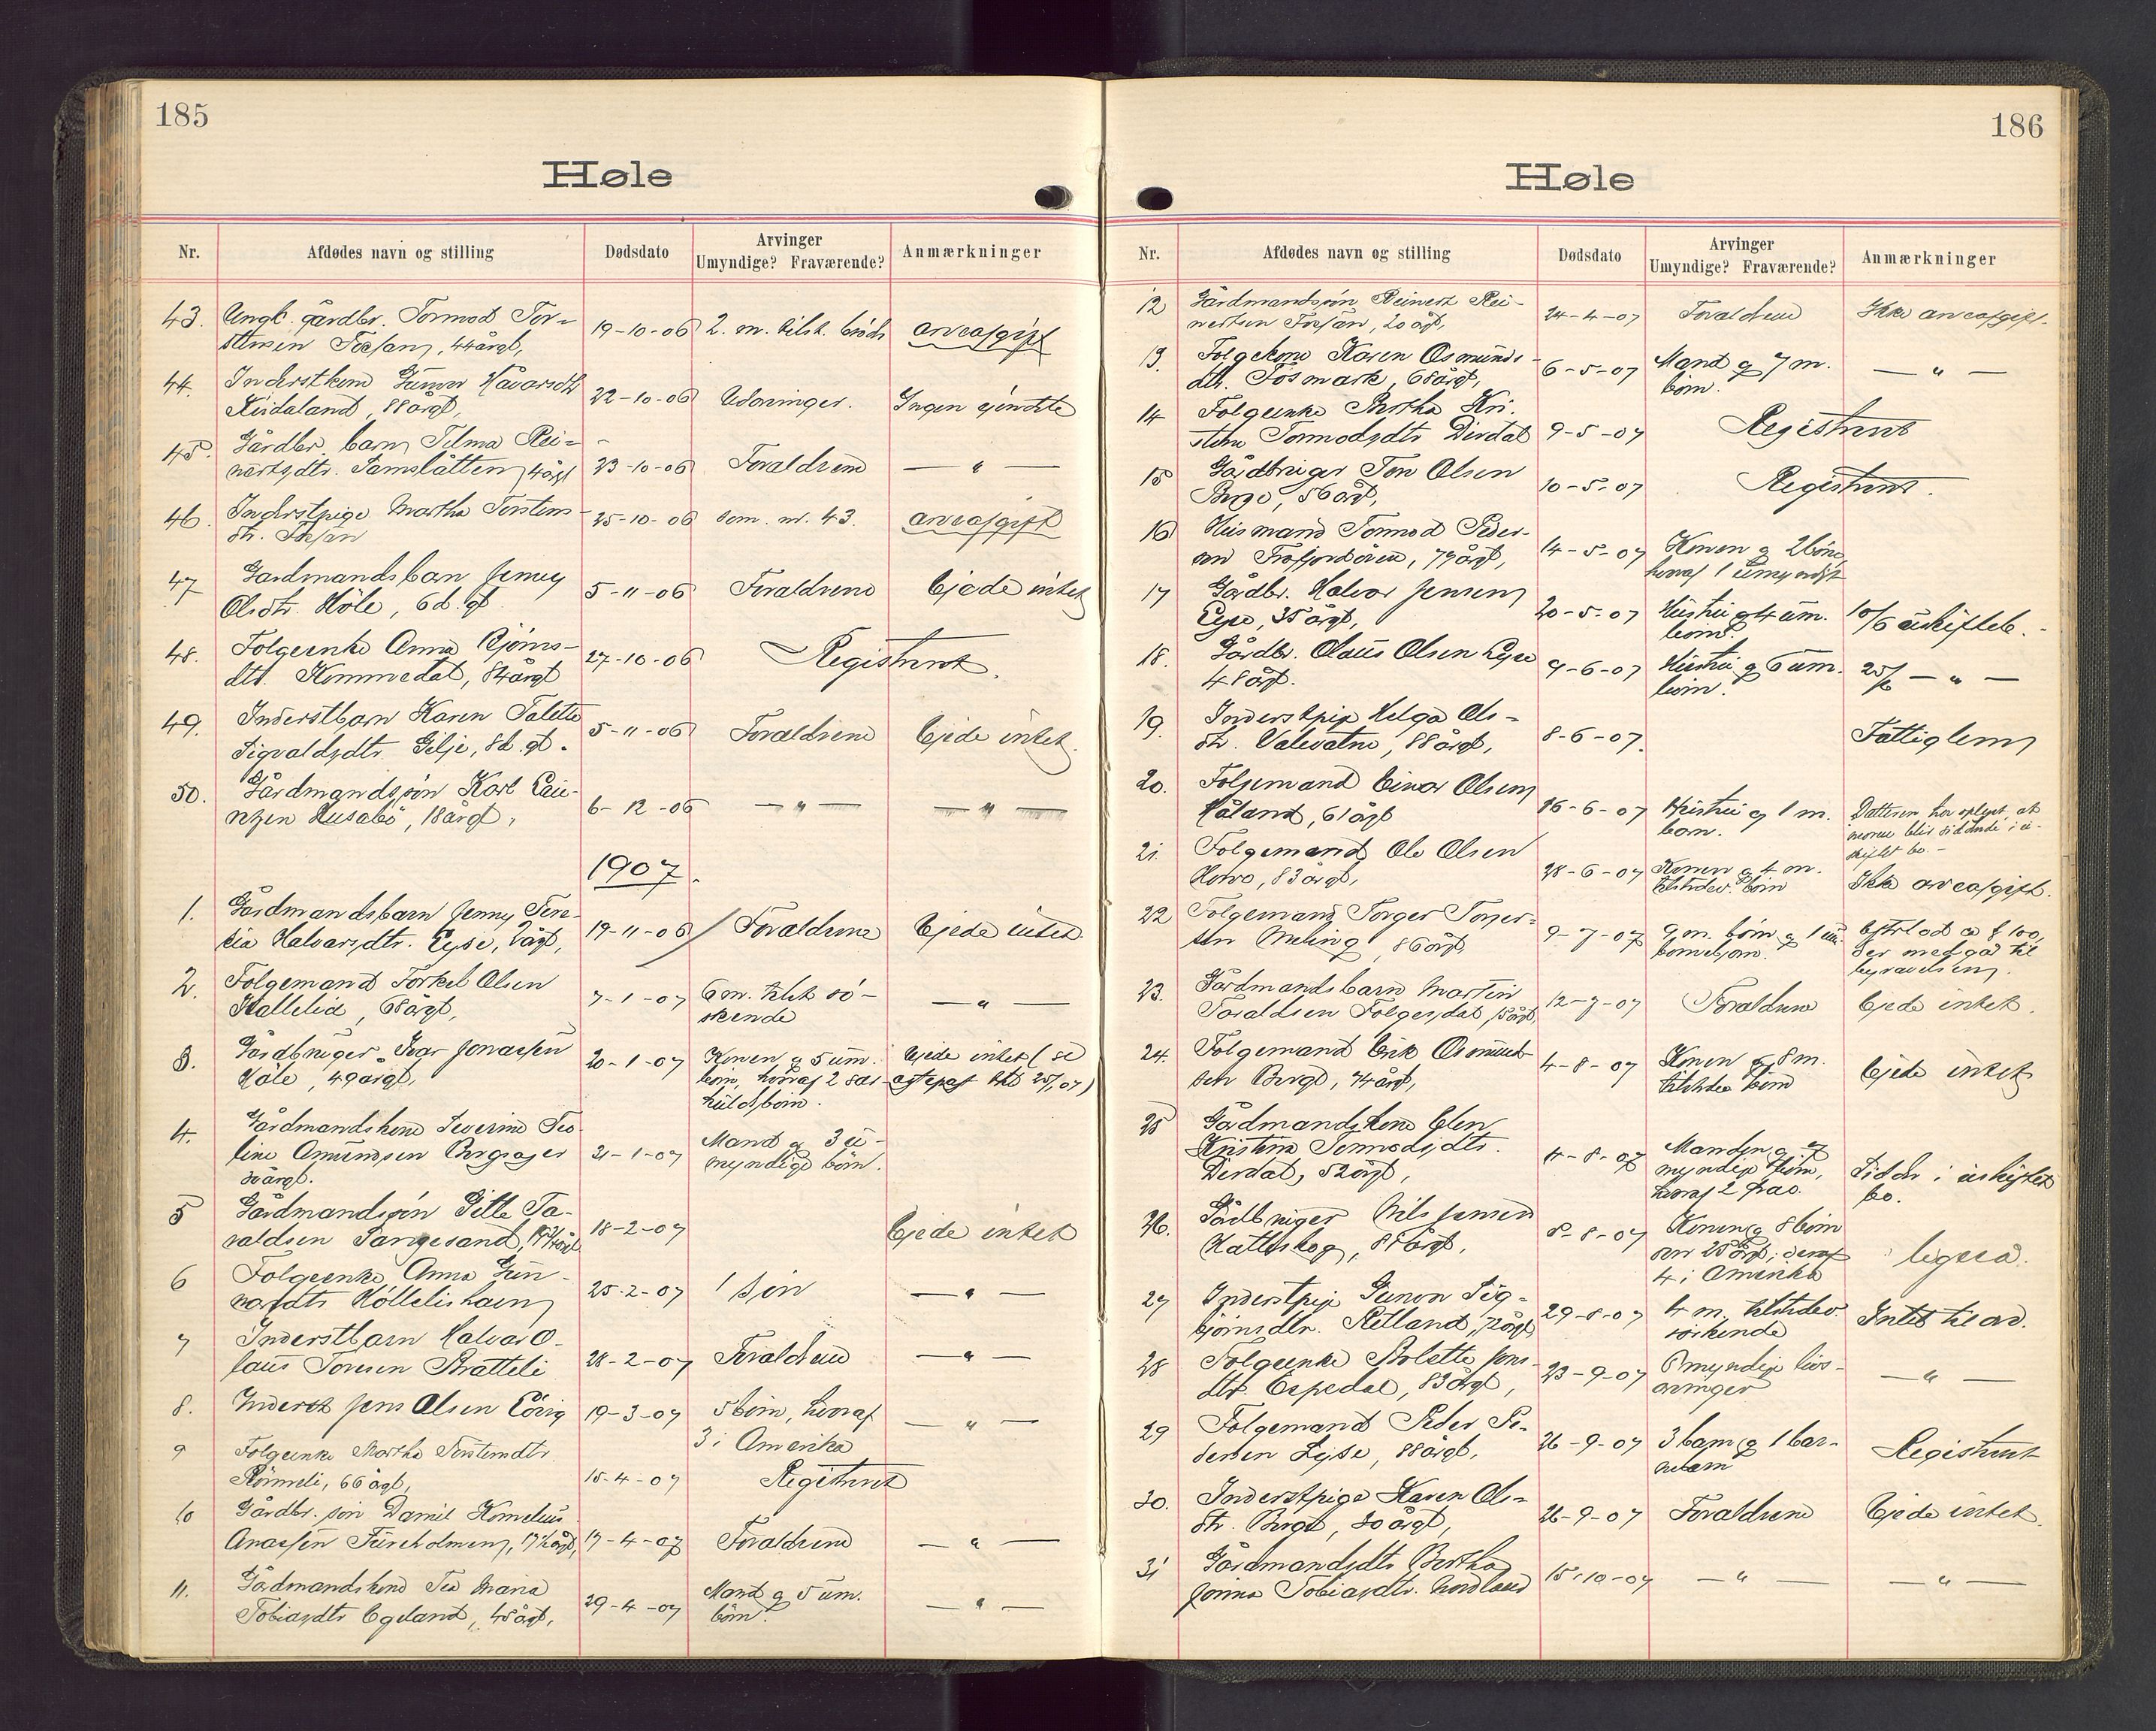 185
Høle
Nr. Afdødes navn og stilling Dødsdato Arvinger Umyndige? Fraværende? Anmærkninger
43. Ungk. gårdbr. Tormod Tor-
stensen Frafjord, 44 årgl, 19-10-06 2. m. tilst. brødr arveafgift
44. Inderstkone Gunvor Håvarsdtr
Kirdaland, 88 årgl, 22-10-06 Udarvinger. Ingen ejendele
45. Gårdbr. barn Tilma Rei-
nertsdtr. Samslåtten, 4 årgl 23-10-06 Forældrene — " —
46. Inderstpige Martha Torstens-
dtr. 25-10-06 som nr. 43. arveafgift
47 Gardmandsbarn Jenny
Olsdtr. Höle, 6 d. gl. 5-11-06 Forældrene Ejede intet
48. Folgeenke Anna Bjørns-
dtr. Kommedal, 84 årgl 27-10-06 Registrert.
49. Inderstbarn Karen Talette
Sigvaldsdtr Gilje, 8 d. gl. 5-11-06 Forældrene Ejede intet.
50. Gårdmandssøn Karl Eiu-
nsen Husabö, 18 årgl, 6-12-06 — " — — " —
1907.
1. Gårdmandsbarn Jenny Tere-
sia Halvarsdtr. Lyse, 2 årgl, 19-11-06 Forældrene Ejede intet.
2. Folgemand Torkel Olsen
Hallelid, 68 årgl, 7-1-07 6 m. tilst. sö-
skende — " —
3. Gårdbruger Ivar Jonassen
Höle, 49 årgl, 20-1-07 Konen og 5 um.
börn, hvoraf 2 sær-
kuldsbörn. Ejede intet (se
07)
4. Gårdmandskone Severine Teo-
line Amundsen Bergsager
30 årgl. 21-1-07 Mand og 3 u-
myndige börn.
5 Gårdmandssön Gitle Ta-
raldsen Sangesand, 18-2-07 Ejede intet
6 Folgeenke Anna Gun-
narsdtr Höllelishaeng 25-2-07 1 sön — " —
7 Inderstbarn Halvar O-
laus Toresen Bratteli 28-2-07 Forældrene — " —
8. Inderst Jens Olsen Eörig 19-3-07 5 börn, hvoraf
3 i Amerika — " —
9 Folgeenke Martha Torstensdtr
Römmeli, 66 årgl, 15-4-07 Registrert
10 Gårdbr. sön Daniel Kornelius
Anassen Fureholmen, 17½ årgl, 17-4-07 Forældrene — " —
11. Gårdmandskone Tea Maria
Tobiasdtr Egeland, 45 årgl, 29-4-07 Mand og 5 um.
börn. — " —
186
Høle
Nr. Afdødes navn og stilling Dødsdato Arvinger Umyndige? Fraværende? Anmærkninger
12 Gårdmandssön Reinert Rei-
nertsen, 20 årgl, 24-4-07 Forældrene Ikke arveafgift.
13. Folgekone Karen Osmunds-
dtr. Fosmark, 68 årgl, 6-5-07 Mand og 7 m.
börn. — " —
14 Folgeenke Bertha Kri-
stine Tormodsdtr Dirdal 9-5-07 Registrert
15 Gårdbruger Ton Olsen
Berge, 56 årgl, 10-5-07 Registrert.
16 Husmand Tormod Peder-
sen Frafjordören, 79 årgl, 14-5-07 Konen og 2 börn,
hvoraf 1 umyndigt
17 Gårdbr. Halvor Jensen
Lyse, 35 årgl, 20-5-07 Hustru og 4 um.
börn. 10/6 uskifteb.
18. Gårdbr. Olaus Olsen Lyse
48 årgl. 9-6-07 Hustru og 6 um.
börn. 25/6 — " —
19. Inderstpige Helga Ols-
dtr. Valevatne, 88 årgl, 8-6-07. Fattiglem
20. Folgemand Einar Olsen
Håland, 61 årgl 16-6-07 Hustru og 1 m.
barn. Datteren har oplyst, at
moren blir siddende i u-
skiftet bo.-
21. Folgemand Ole Olsen
83 årgl, 28-6-07 Konen og 4 m.
tilstedev. börn Ikke arveafgift.
22 Folgemand Torger Torger-
sen Meling, 86 årgl 9-7-07 9 m. börn og 1 um.
barnebarn. Efterlod ca kr 100,
der medgår til
begravelsen.
23. Gårdmandsbarn Martin
Taraldsen Folgesdal 12-7-07 Forældrene Ejede intet.
24. Folgemand Eirik Osmund-
sen Berge, 74 årgl, 4-8-07 Konen og 8 m.
tilstedev. börn Ejede intet
25 Gårdmandskone Elen
Kristine Tormodsdtr.
Dirdal, 52 årgl, 4-8-07 Manden og 7
myndige börn,
hvoraf 2 frav. Sidder i uskiftet
bo.
26. Gårdbruger Nils Jensen
Hatteskog, årgl, 8-8-07 Konen og 8 börn
over 25 årgl, deraf
4 i Amerika ligeså.
27 Inderstpige Gunvor Sig-
björnsdtr. Retland, 72 årgl 29-8-07 4 m. tilstedev.
söskende Intet til arv.
28 Folgeenke Bolette Jons-
dtr. Espedal, 83 årgl, 23-9-07 6 myndige livs-
arvinger — " —
29 Folgemand Peder Pe-
dersen Lyse, 88 årgl, 26-9-07 3 barn og 1 bar-
nebarn Registrert
30. Inderstpige Karen Ols-
dtr. Berge, 20 årgl, 26-9-07 Forældrene Ejede intet.
31 Gårdmandsdtr Bertha
Jonna Tobiasdtr. Nordland 15-10-07 — " — — " —